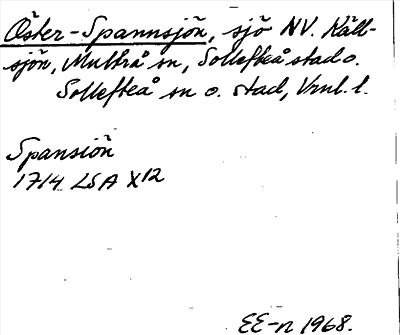 Öster-Spannsjön, sjö NV. Käll-
sjön, Multrå sn, Sollefteå stad o.
Sollefteå sn o. stad, Vrnl. l.
Spansiön
1714 LSA X12
EE-n 1968.